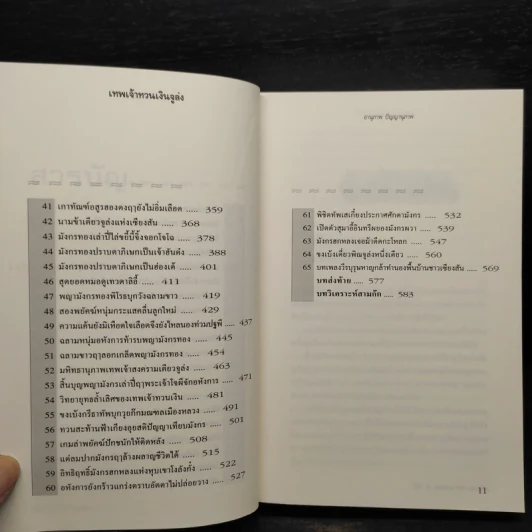 เทพเจ้าทวนเงินจูล่ง
41 เกาทัณฑ์อสูรสองคงฤๅยังไม่อิ่มเลือด ..... 359
42 นามข้าเตียวจูล่งแห่งเซียงสัน ..... 368
43 มังกรทองเล่าปี่ไล่ขยี้ปี้จิ้งจอกโจโฉ ..... 378
44 มังกรทองปราบดาภิเษกเป็นเจ้าฮันต๋ง ..... 388
45 มังกรทองปราบดาภิเษกเป็นฮ่องเต้ ..... 401
46 สุดยอดหมอดูเทวดาลิอี้ ..... 411
47 พญามังกรทองพิโรธบุกรังฉลามขาว ..... 419
48 สองพยัคฆ์หนุ่มกระแสคลื่นลูกใหม่ ..... 429
49 ความแค้นยังมิเหือดใจเลือดจึงยังไหลนองท่วมปฐพี ..... 437
50 ฉลามหนุ่มอหังการท้ารบพญามังกรทอง ..... 445
51 ฉลามขาวฤๅลอกเกล็ดพญามังกรทอง ..... 454
52 มหิทธานุภาพเทพเจ้าสงครามเตียวจูล่ง ..... 463
53 สิ้นบุญพญามังกรเล่าปี่ฤๅพระเจ้าโจผีจักอหังการ ..... 471
54 วิทยายุทธล้ำเลิศของเทพเจ้าทวนเงิน ..... 481
55 ขงเบ้งกรีธาทัพบุกวุยก๊กมณฑลเมืองหลวง ..... 491
56 ทวนสะท้านฟ้าเกียงอุยสติปัญญาเทียบมังกร ..... 501
57 เกมล่าพยัคฆ์ปักชนักให้ติดหลัง ..... 508
58 แค้นลมปากมังกรฤๅล้างผลาญชีวิตได้ ..... 515
59 อิทธิฤทธิ์มังกรสกหลงแห่งหุบเขาโงลังกั๋ง ..... 522
60 อหังการยังกร้าวแกร่งตราบอัตตาไม่ปล่อยวาง ..... 527
อานุภาพ ปัญญานุภาพ
61 พิชิตทัพเสเกี๋ยงประกาศศักดามังกร ..... 532
62 เปิดตัวสุมาอี้อินทรีผยองมังกรผวา ..... 539
63 มังกรสกหลงเจอม้าดีดกะโหลก ..... 547
64 ขงเบ้งเดี่ยวพิณจูล่งหนึ่งเดียว ..... 560
65 บทเพลงวีรบุรุษหาญกล้าทำนองพื้นบ้านชาวเซียงสัน ..... 569
บทส่งท้าย ..... 577
บทวิเคราะห์สามก๊ก ..... 583
11